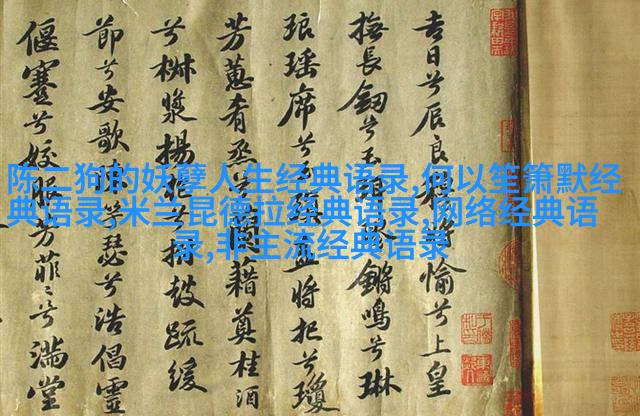 陈二狗的妖孽人生经典语录,何以笙箫默经
典语录,米兰昆德拉经典语录,网络经典语
录,非主流经典语录
吉日兮辰良將愉兮上皇
撫長釰兮玉鏘鳴兮琳
琅瑤席兮將把兮瓊
芳蕙肴烝蘭藉奠桂酒
兮椒漿揚枹兮拊鼓疏緩
節兮安歌瑟兮浩倡靈
偃蹇兮姣服芳菲〻兮滿堂